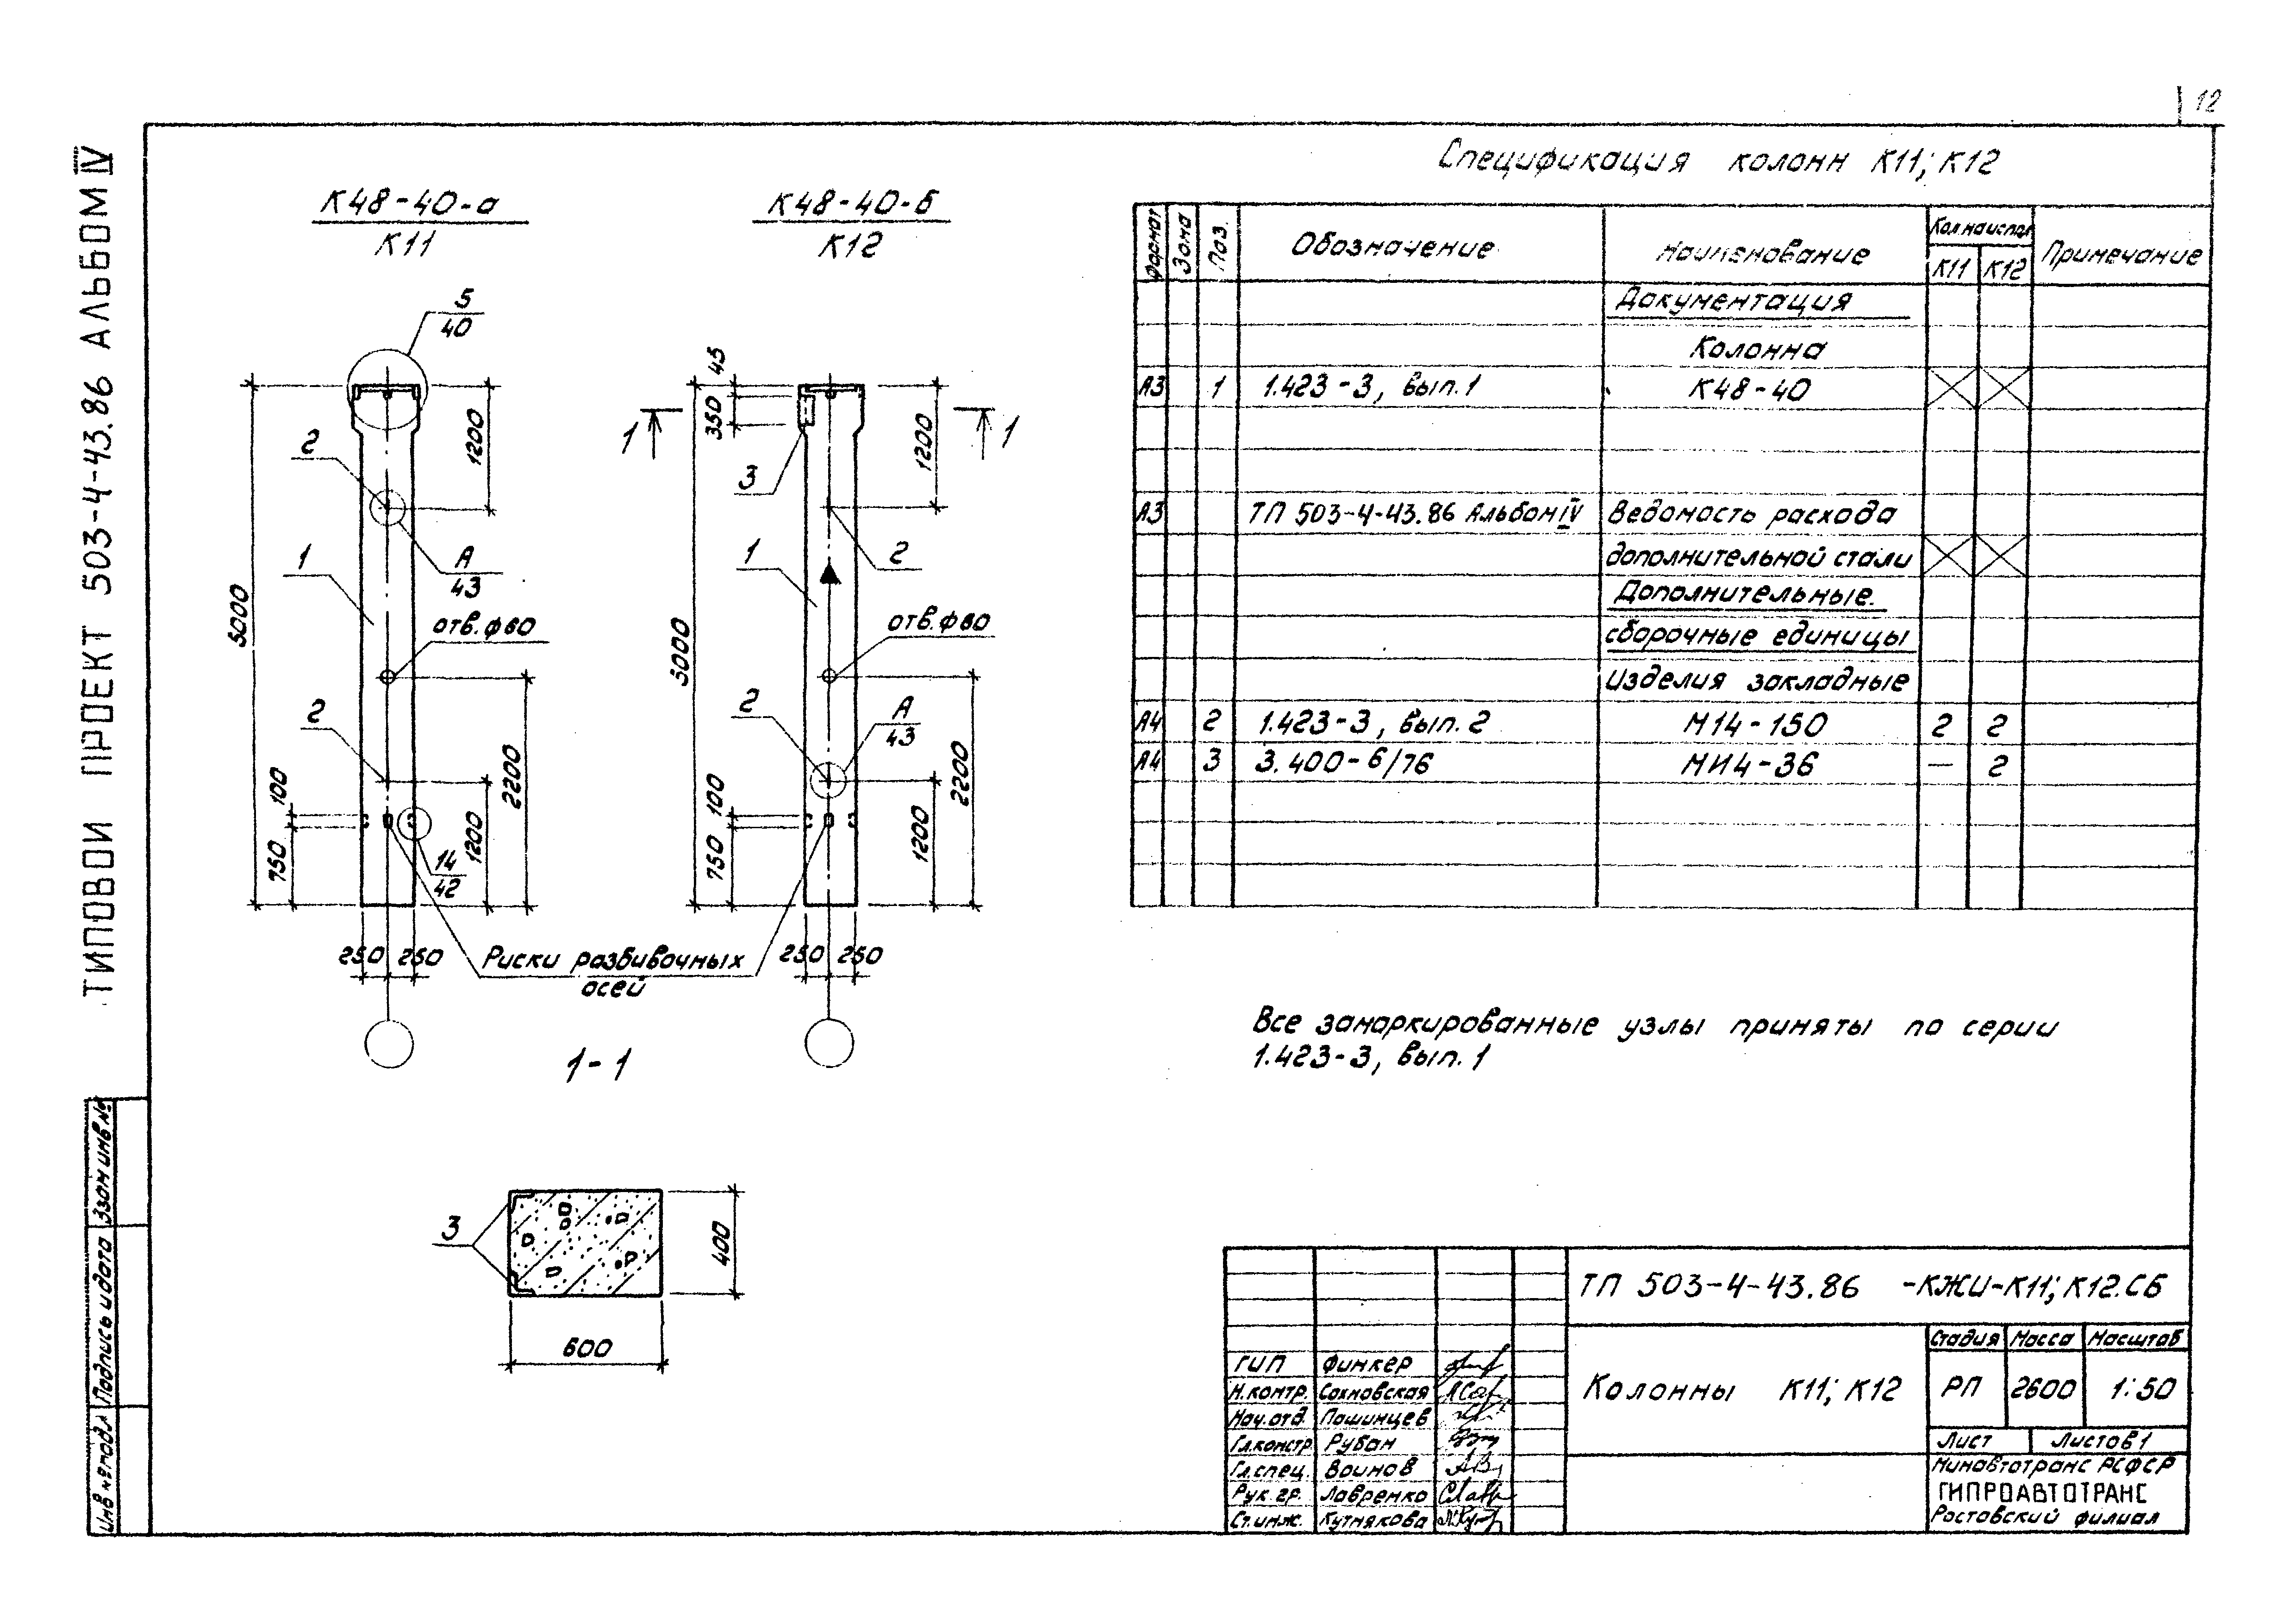 12
ТИПОВОЙ ПРОЕКТ 503-4-43.86 АЛЬБОМ IV
К48-40-а
К11
К48-40-Б
К12
5
40
5000
1200
2
А
43
1
отв.ф60
2
2200
1200
100
750
14
42
250 250
45
350
1 1
3
1200
5000
1
2
отв.ф60
2
А
43
2200
1200
100
750
250 250
Риски разбивочных
осей
1-1
3
400
600
Спецификация колонн К11; К12
Формат Зона Поз. Обозначение Наименование Кол.на испол К11 К12 Примечание
Документация
Колонна
А3 1 1.423-3, вып.1 К48-40
А3 ТП 503-4-43.86 Альбом IV Ведомость расхода
дополнительной стали
Дополнительные
сборочные единицы
Изделия закладные
А4 2 1.423-3, вып.2 М14-150 2 2
А4 3 3.400-6/76 МИ4-36 — 2
Все замаркированные узлы приняты по серии
1.423-3, вып.1
ТП 503-4-43.86 -КЖИ-К11; К12.СБ
Колонны К11; К12
Стадия Масса Масштаб
РП 2600 1:50
Лист Листов 1
Минавтотранс РСФСР
ГИПРОАВТОТРАНС
Ростовский филиал
ГИП Финкер
Н.контр. Сахновская
Нач.отд. Пашинцев
Гл.констр. Рубан
Гл.спец. Воинов
Рук.гр. Лавренко
Ст.инж. Кутнякова
Инв.№подл Подпись и дата Взам инв.№